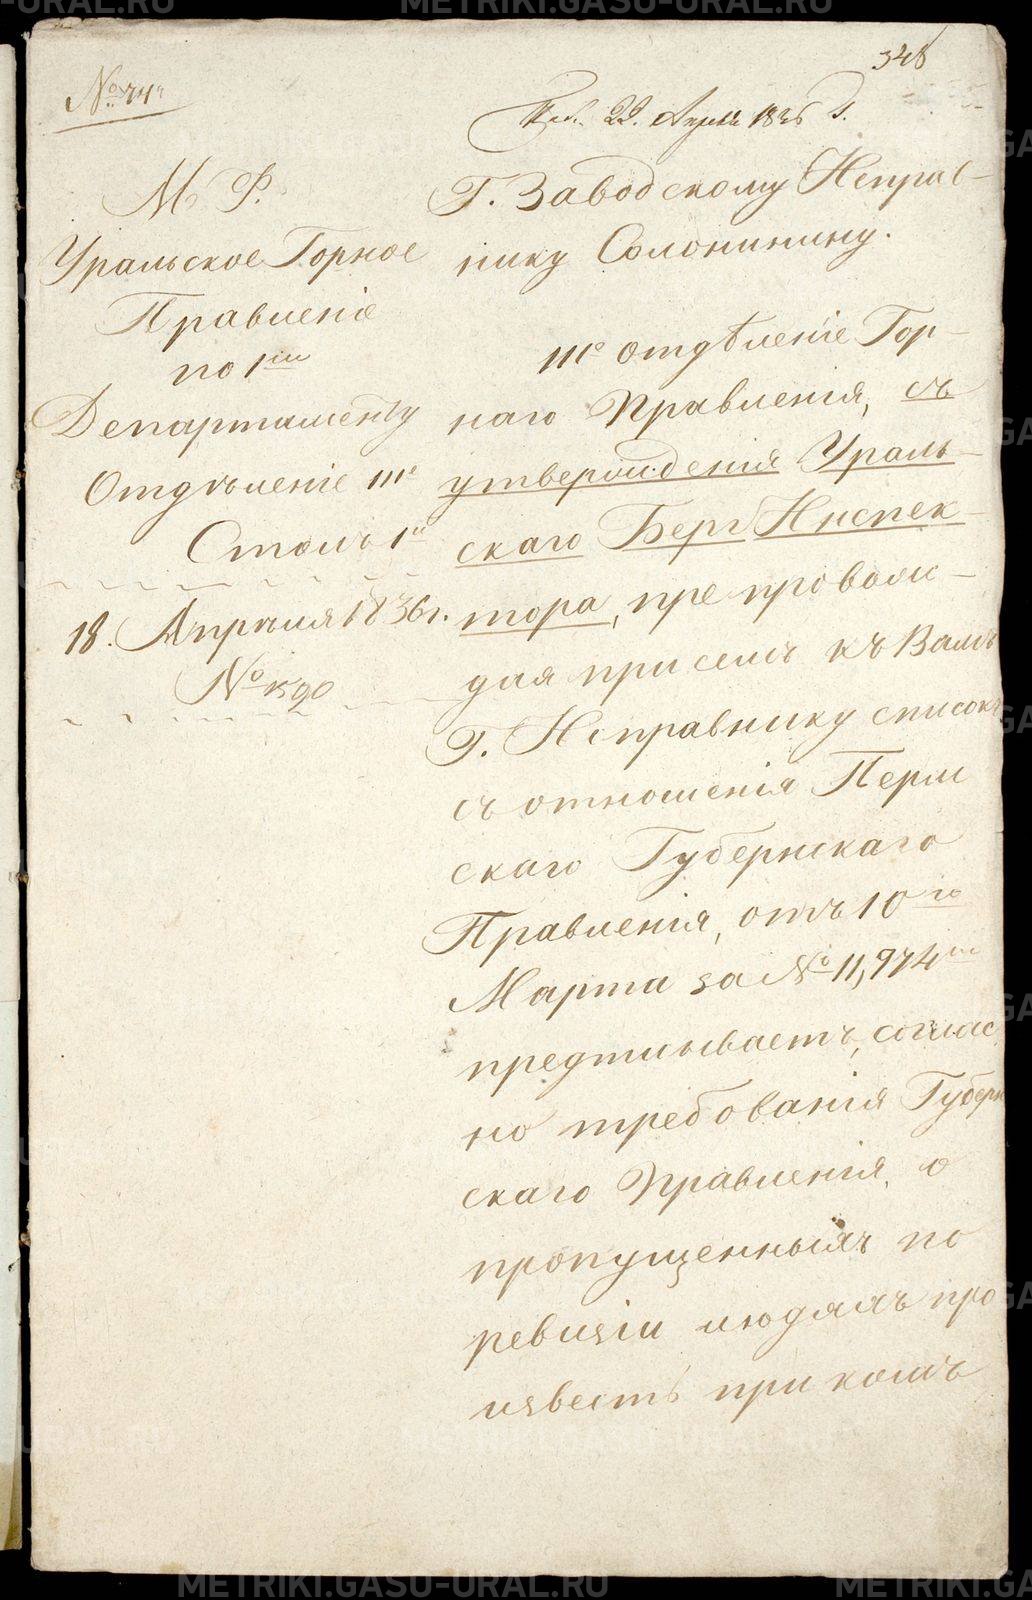 348
Пол. 22. Апреля 1836 г.
М. Ф.
Уральское Горное
Правленіе
по 1му
Департаменту
Отдѣленіе III.е
Столъ 1й
18. Апрѣля 1836 г.
№ 1590
Г. Заводскому Исправ-
нику Солонинину.
III.е отдѣленіе Гор-
наго Правленія, съ
утвержденія Ураль-
скаго Берг Инспек-
тора, препровож-
дая при семъ къ Вамъ
Г. Исправнику списокъ
съ отношенія Перм
скаго Губернскаго
Правленія, отъ 10го
Марта за № 11,974м
предписываетъ, соглас
но требованія Губерн
скаго Правленія, о
пропущенныхъ по
ревизіи людямъ про
известь при комъ
METRIKI.GASU-URAL.RU